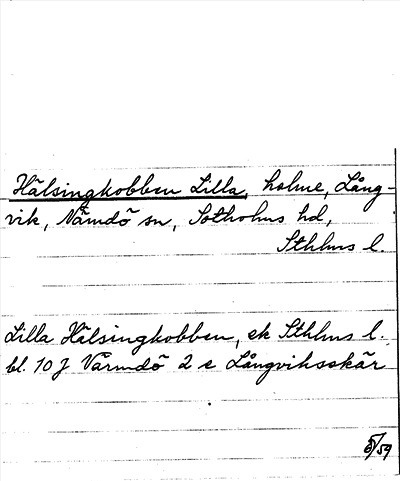 Hälsingkobben Lilla, holme, Lång-
vik, Nämdö sn, Sotholms hd,
Sthlms l.
Lilla Hälsingkobben, ek Sthlms l.
bl. 10 J Värmdö 2 e Långviksskär
5/59